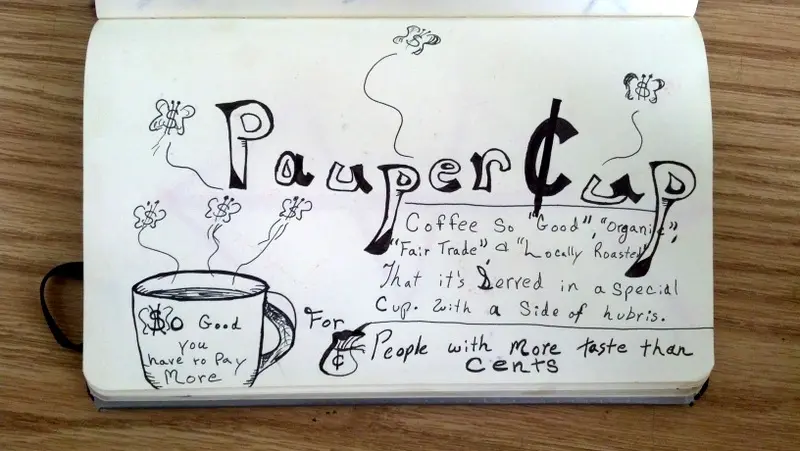 Pauper ¢up
Coffee So "Good", "Organic",
"Fair Trade" & "Locally Roasted"
That it's Served in a Special
Cup. With a Side of hubris.
$o Good
you
have to Pay
More
For
¢
People with More taste than
Cents